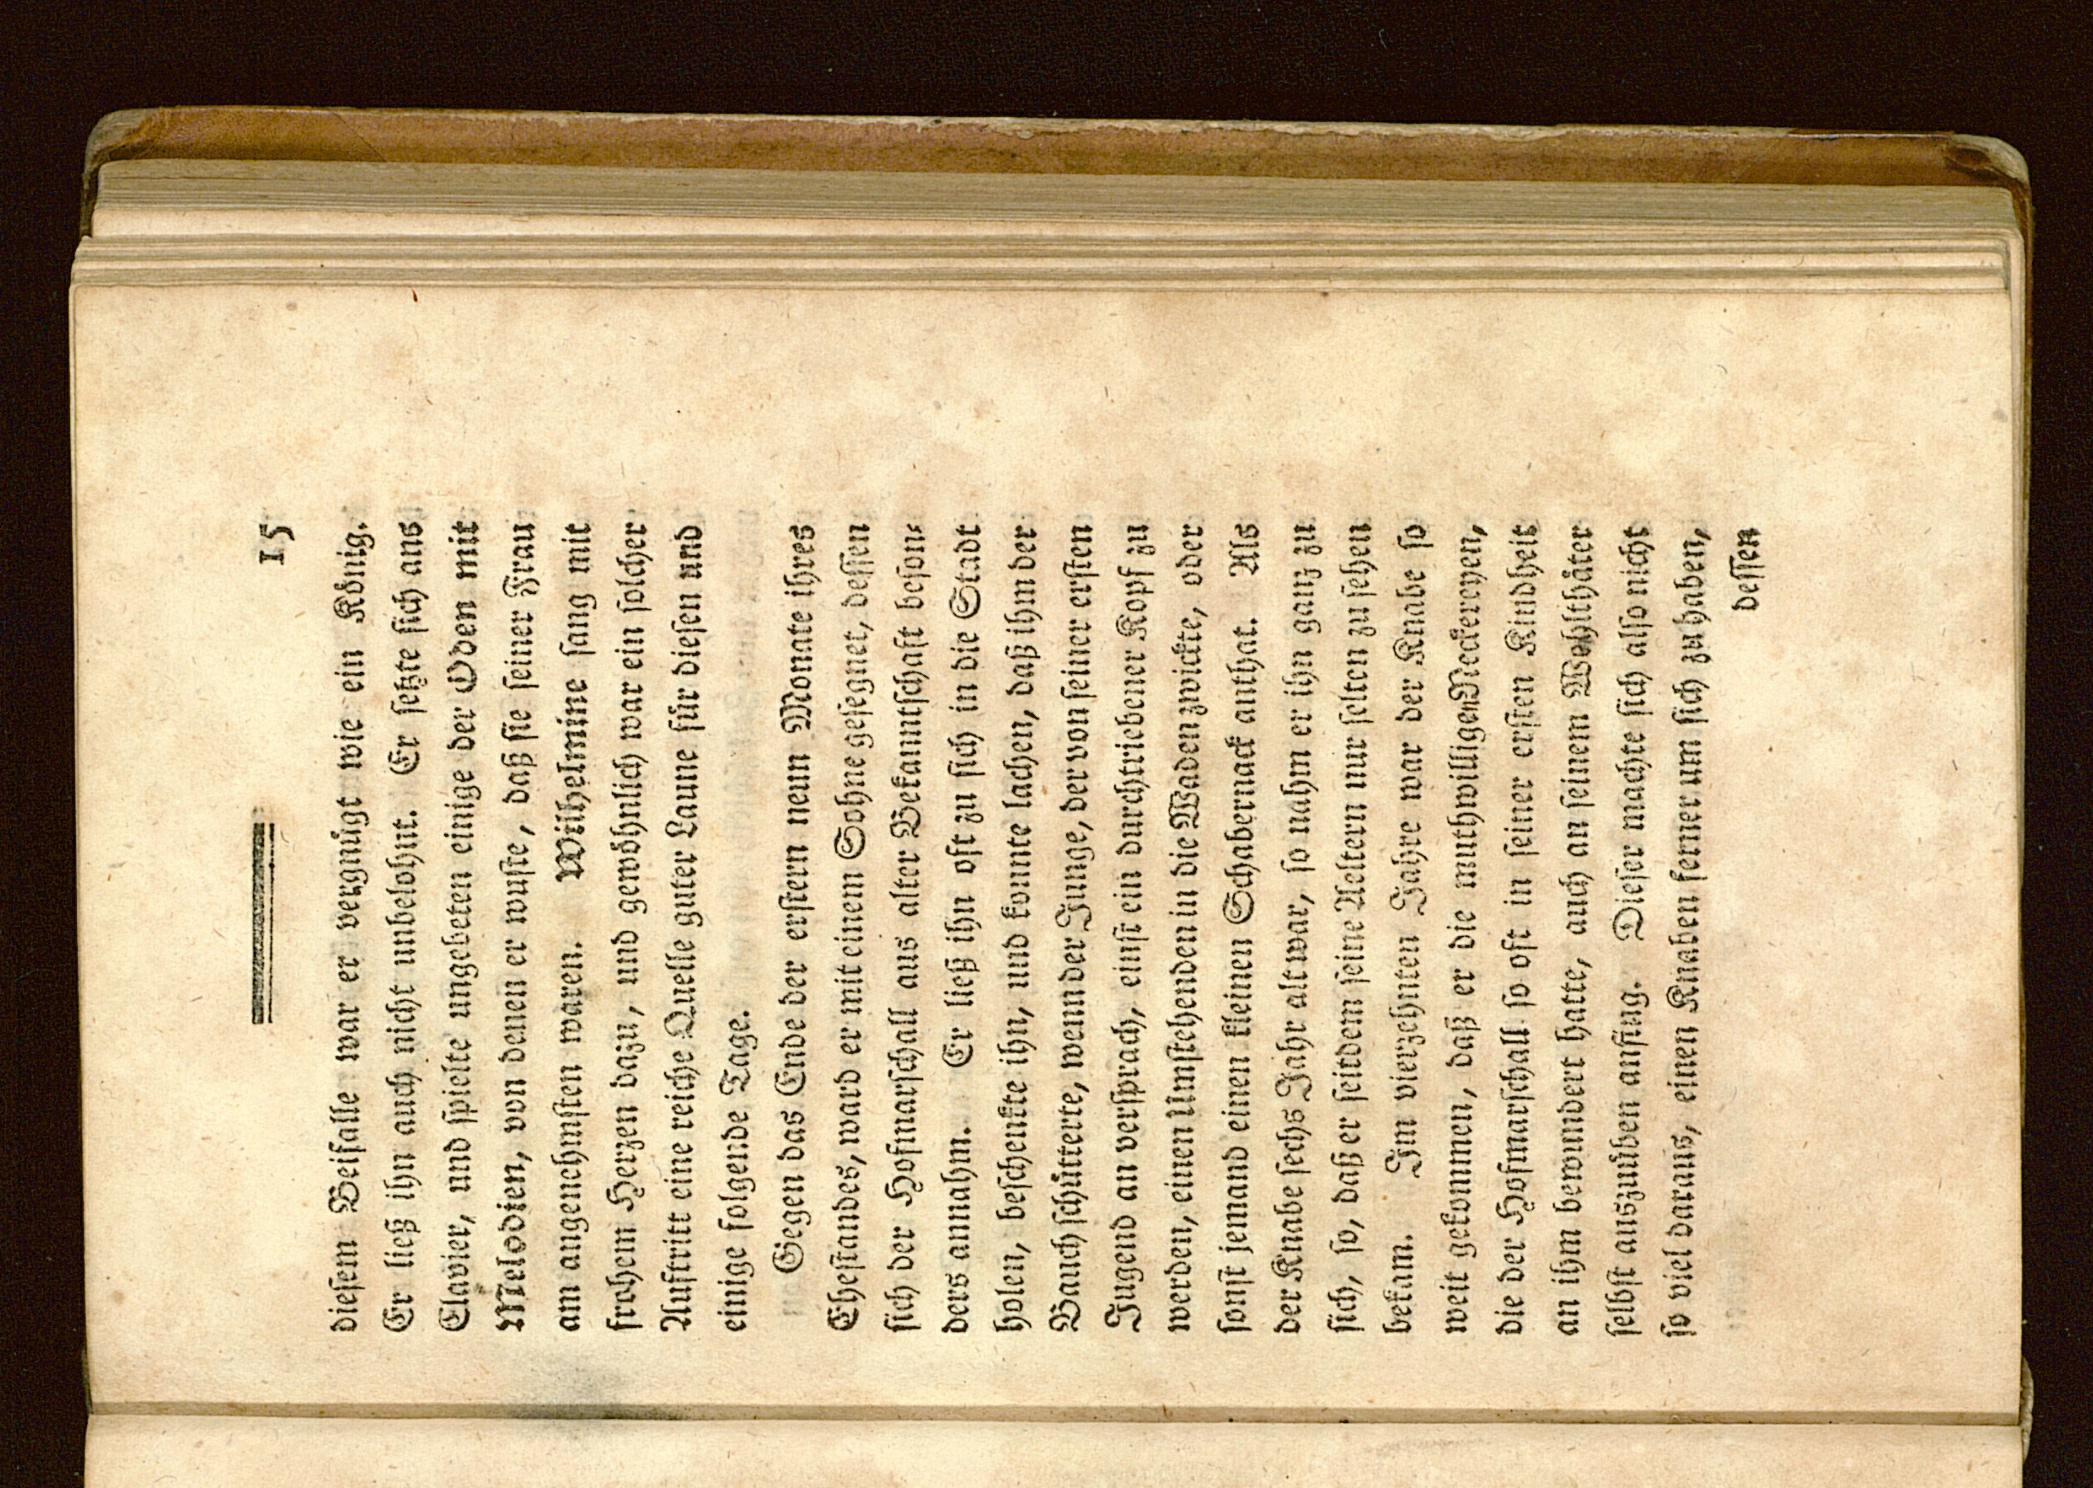 15
dieſem Beifalle war er vergnügt wie ein König.
Er ließ ihn auch nicht unbelohnt. Er ſetzte ſich ans
Clavier, und ſpielte ungebeten einige der Oden mit
Melodien, von denen er wuſte, daß ſie ſeiner Frau
am angenehmſten waren. Wilhelmine ſang mit
frohem Herzen dazu, und gewöhnlich war ein ſolcher
Auftritt eine reiche Quelle guter Laune für dieſen und
einige folgende Tage.
Gegen das Ende der erſtern neun Monate ihres
Eheſtandes, ward er mit einem Sohne geſegnet, deſſen
ſich der Hofmarſchall aus alter Bekanntſchaft beſon⸗
ders annahm. Er ließ ihn oft zu ſich in die Stadt
holen, beſchenkte ihn, und konnte lachen, daß ihm der
Bauch ſchütterte, wenn der Junge, der von ſeiner erſten
Jugend an verſprach, einſt ein durchtriebener Kopf zu
werden, einen Umſtehenden in die Waden zwickte, oder
ſonſt jemand einen kleinen Schabernack anthat. Als
der Knabe ſechs Jahr alt war, ſo nahm er ihn ganz zu
ſich, ſo, daß er ſeitdem ſeine Aeltern nur ſelten zu ſehen
bekam. Im vierzehnten Jahre war der Knabe ſo
weit gekommen, daß er die muthwilligen Neckereyen,
die der Hofmarſchall ſo oft in ſeiner erſten Kindheit
an ihm bewundert hatte, auch an ſeinem Wohlthäter
ſelbſt auszuüben anfing. Dieſer machte ſich alſo nicht
ſo viel daraus, einen Knaben ferner um ſich zu haben,
deſſen